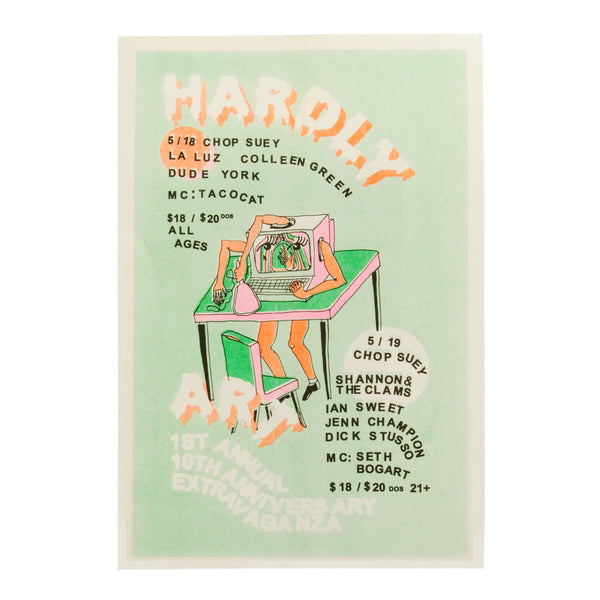 HARDLY
5/18 CHOP SUEY
LA LUZ COLLEEN GREEN
DUDE YORK
MC: TACOCAT
$18 / $20 DOS
ALL
AGES
5 / 19
CHOP SUEY
SHANNON &
THE CLAMS
IAN SWEET
JENN CHAMPION
DICK STUSSO
MC: SETH
BOGART
$18 / $20 DOS 21+
ART
1ST ANNUAL
10TH ANNIVERSARY
EXTRAVAGANZA